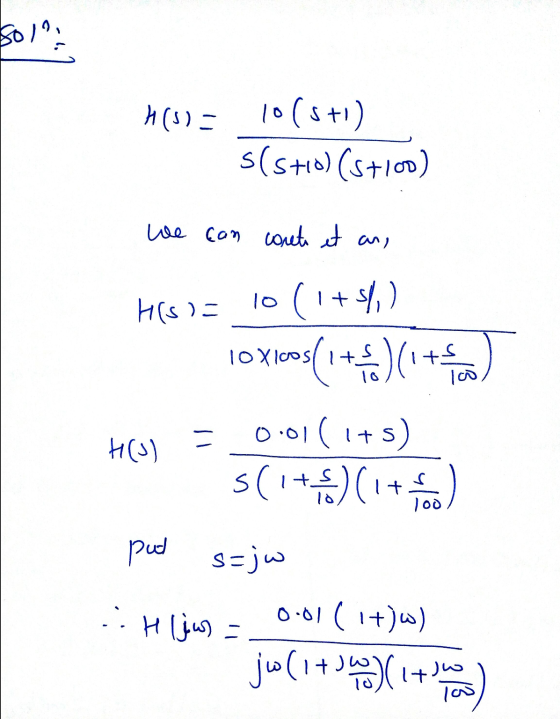 Solⁿ:
H(s) = 10(s+1) / s(s+10)(s+100)
We can write it as,
H(s) = 10(1+s/1) / 10×100s(1+s/10)(1+s/100)
H(s) = 0.01(1+s) / s(1+s/10)(1+s/100)
put s=jω
∴ H(jω) = 0.01(1+jω) / jω(1+jω/10)(1+jω/100)